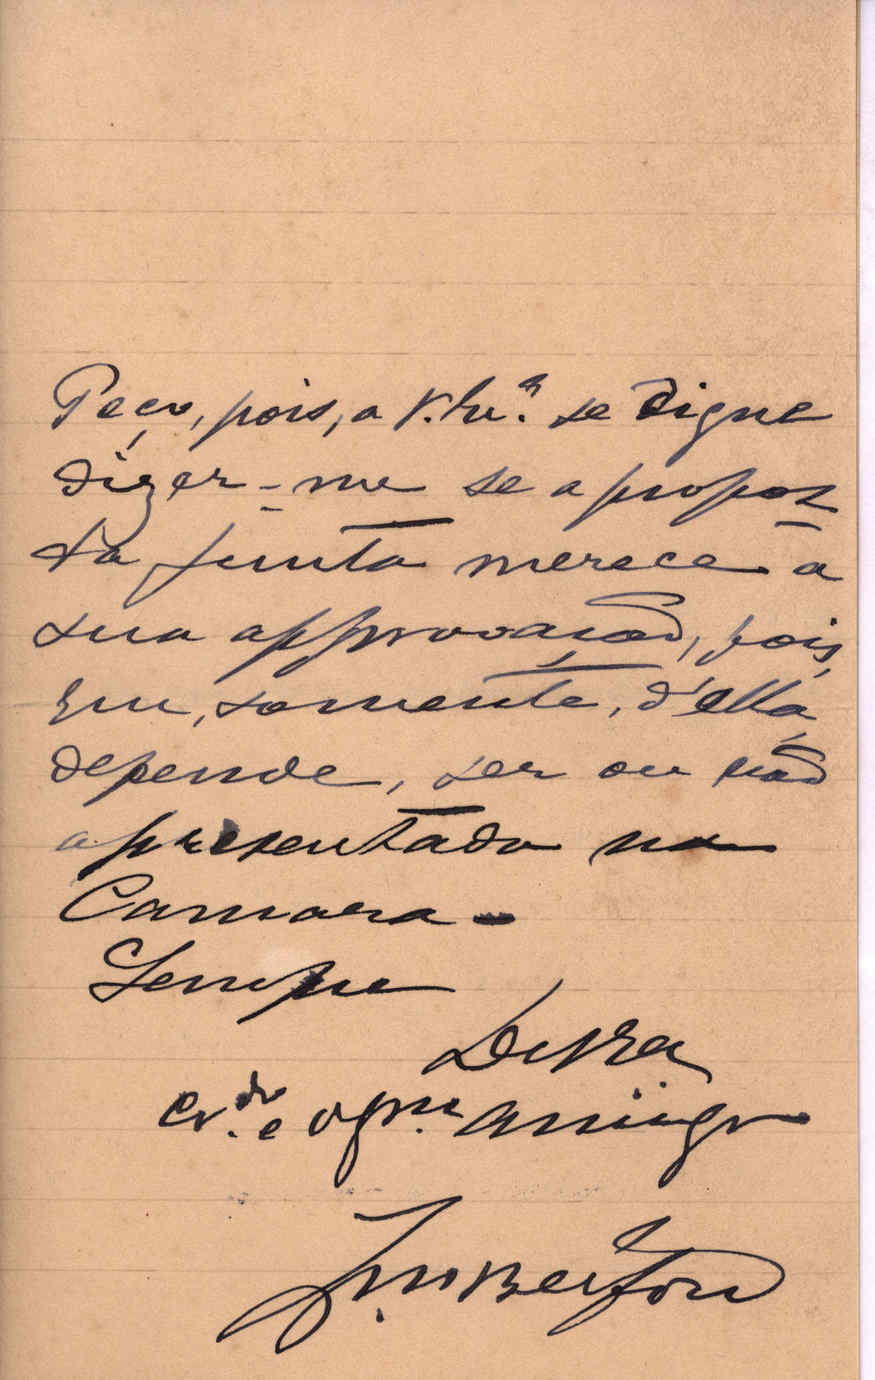 Peço, pois, a V. Exª. se digne
dizer-me se a propos-
ta junta merece a
sua approvação, pois,
que, somente, d'ella,
depende, ser ou não
apresentado na
Camara -
Sempre
De V. Exa
crdo. e obrmo. amigo